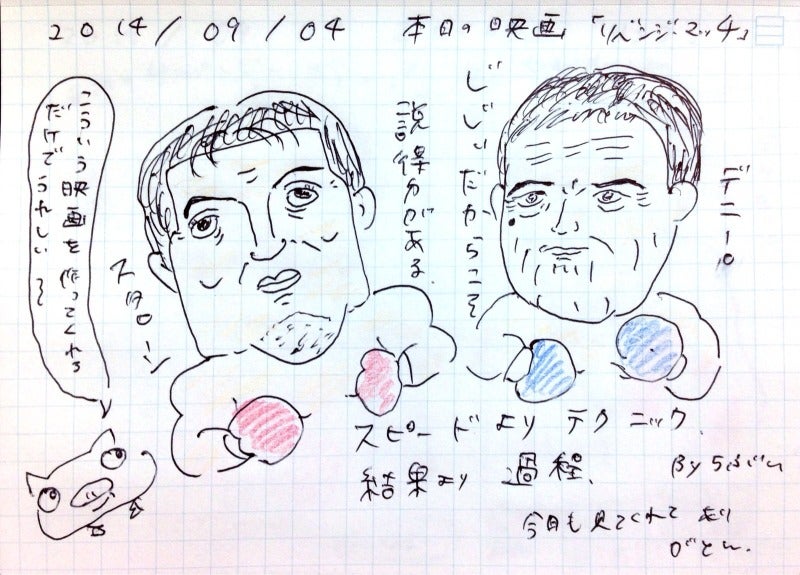 2014/09/04 本日の映画 「リベンジマッチ」
こういう映画を作ってくれる
だけでうれしい
スタローン
説得力がある.
じじいだからこそ
デニーロ
スピードよりテクニック.
結果より 過程、
By らぶい
今日も見てくれて あり
がとい.